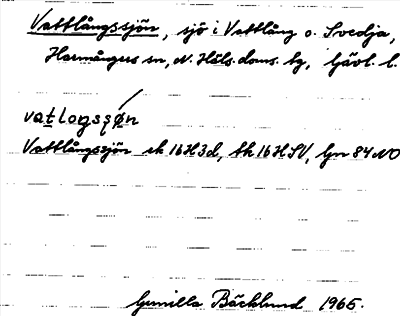 Vattlångssjön, sjö i Vattlång o. Svedja,
Harmångers sn, N. Häls. doms. bg, Gävl. l.
vatlogssøn
Vattlångssjön ek 16H3d, tk 16HSV, Gn 84NO
Gunilla Bäcklund 1965.